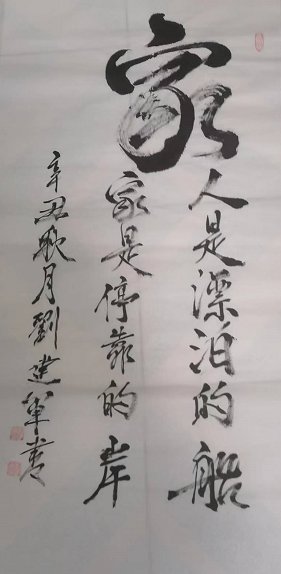 家
人是漂泊的船
家是停靠的岸
辛丑秋月劉建軍書